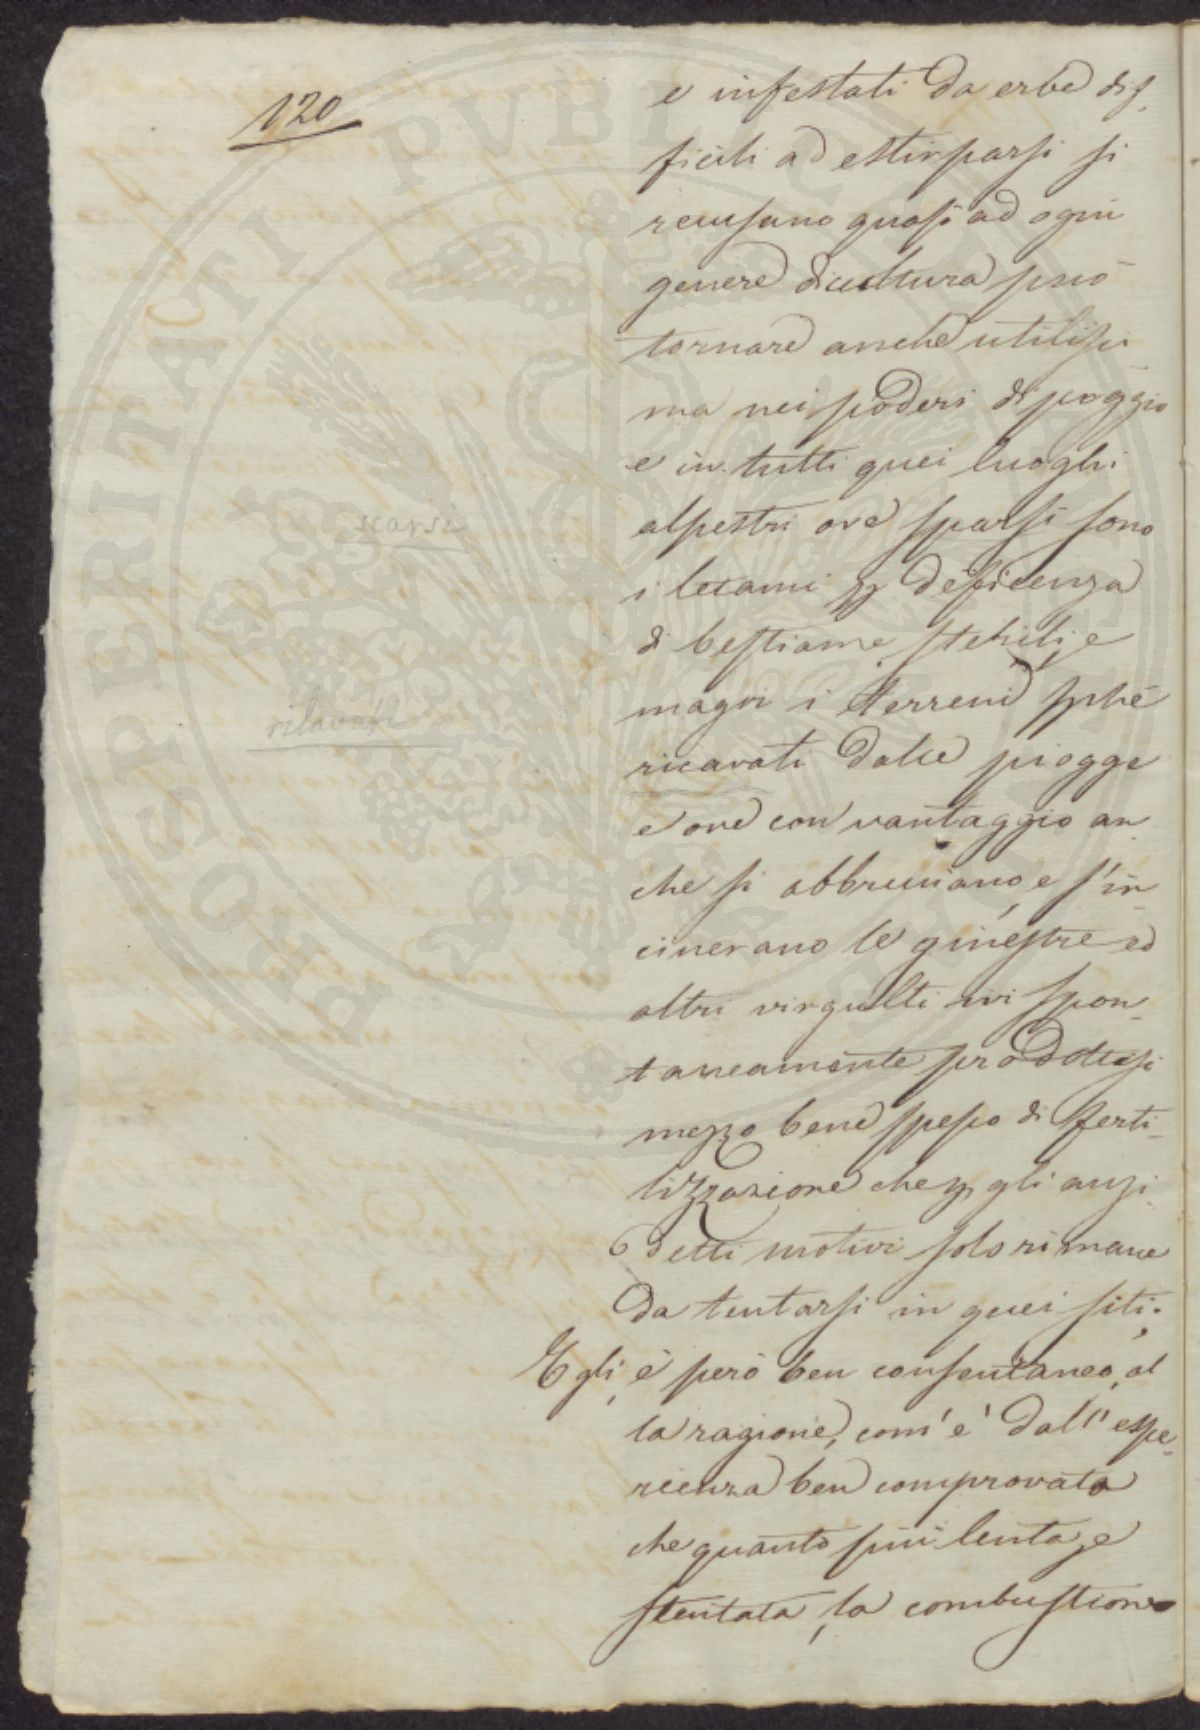 120
e infestati da erbe dif
ficili ad estirparsi si
recusano quasi ad ogni
genere di cultura può
tornare anche utilissi
ma nei poderi di poggio
e in tutti quei luoghi
alpestri ove sparsi sono
scarsi
i letami per deficenza
di bestiame, sterili, e
magri i terreni perchè
rilavati
ricavati dalle piogge
e ove con vantaggio an
che si abbruciano, e s'in
cinerano le ginestre ed
altri virgulti ivi spon
taneamente prodottisi
mezzo bene spesso di ferti
lizzazione che per gli anzi
detti motivi solo rimane
da tentarsi in quei siti.
Egli, è però ben consentaneo, al
la ragione, com'è dall'espe
rienza ben comprovato
che quanto più lenta, e
stentata, la combustione
PROSPERITATI PVBLICAE